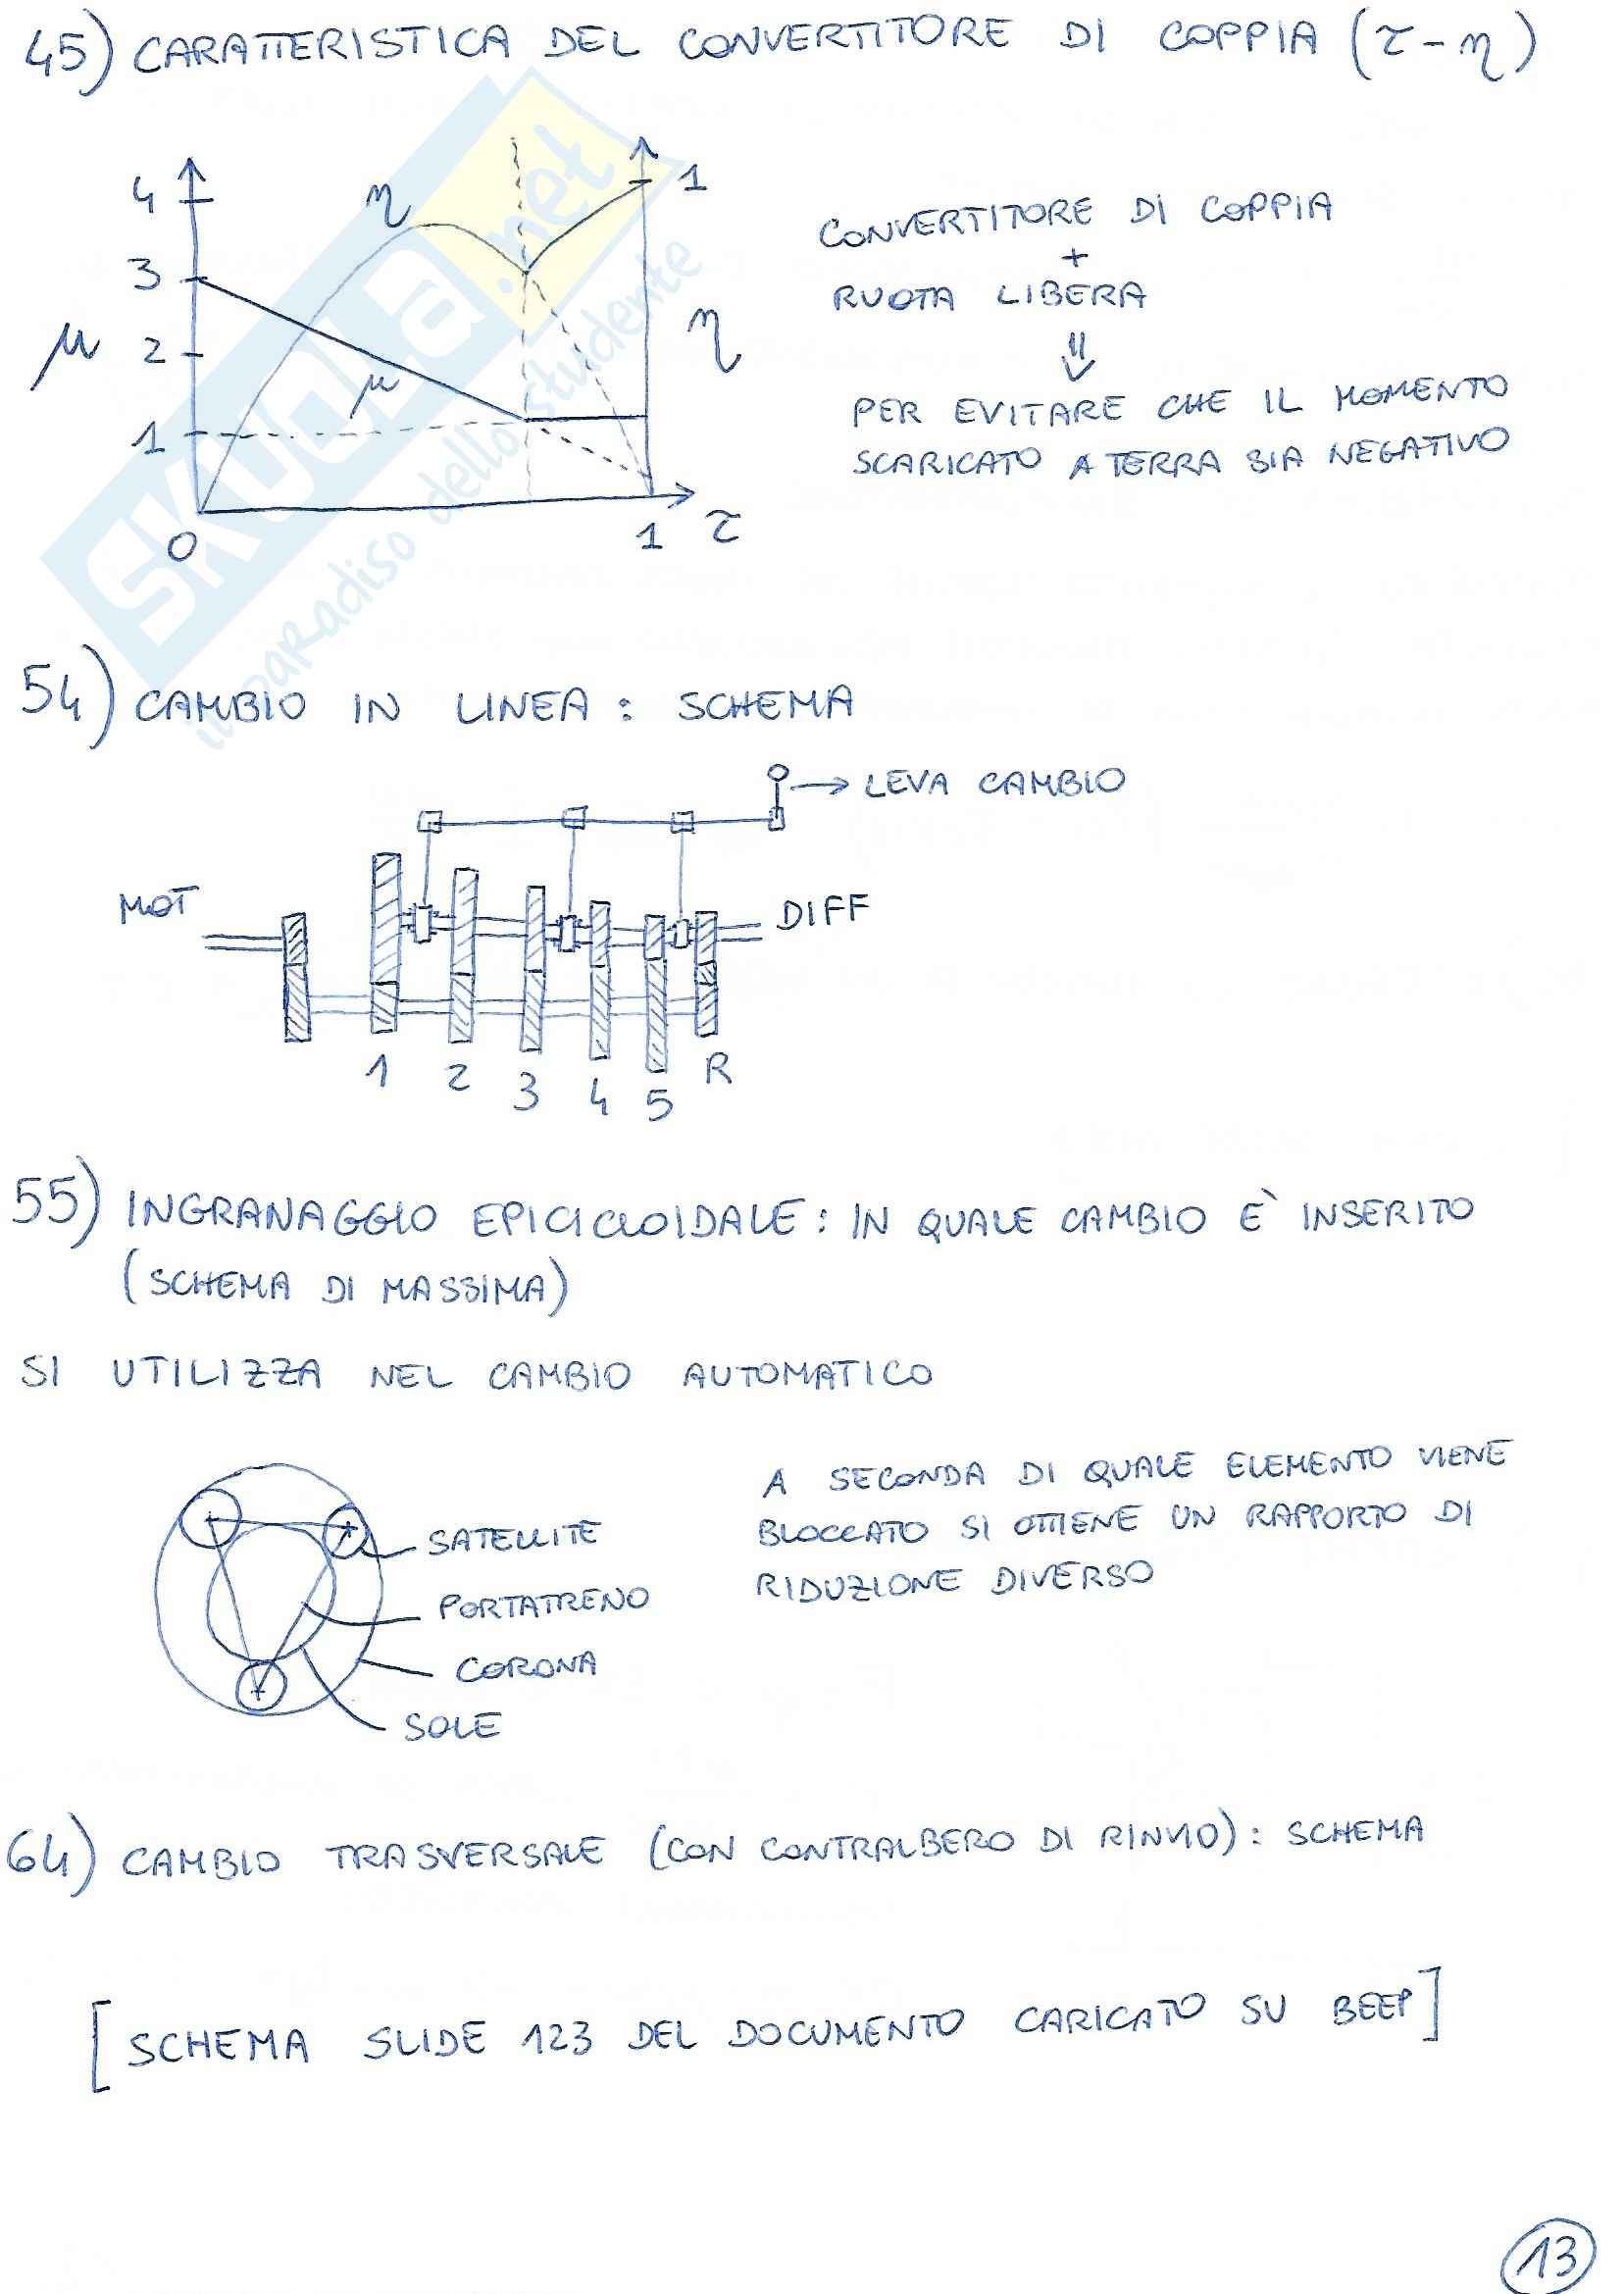 45) CARATTERISTICA DEL CONVERTITORE DI COPPIA (τ-η)
4
3
2
1
0
μ
η
μ
1
η
1
τ
CONVERTITORE DI COPPIA
+
RUOTA LIBERA
⇓
PER EVITARE CHE IL MOMENTO
SCARICATO A TERRA SIA NEGATIVO
SKUOLA.net
il paradiso dello studente
54) CAMBIO IN LINEA: SCHEMA
→ LEVA CAMBIO
MOT
DIFF
1 2 3 4 5 R
55) INGRANAGGIO EPICICLOIDALE: IN QUALE CAMBIO È INSERITO
(SCHEMA DI MASSIMA)
SI UTILIZZA NEL CAMBIO AUTOMATICO
SATELLITE
PORTATRENO
CORONA
SOLE
A SECONDA DI QUALE ELEMENTO VIENE
BLOCCATO SI OTTIENE UN RAPPORTO DI
RIDUZIONE DIVERSO
64) CAMBIO TRASVERSALE (CON CONTRALBERO DI RINVIO): SCHEMA
[SCHEMA SLIDE 123 DEL DOCUMENTO CARICATO SU BEEP]
13